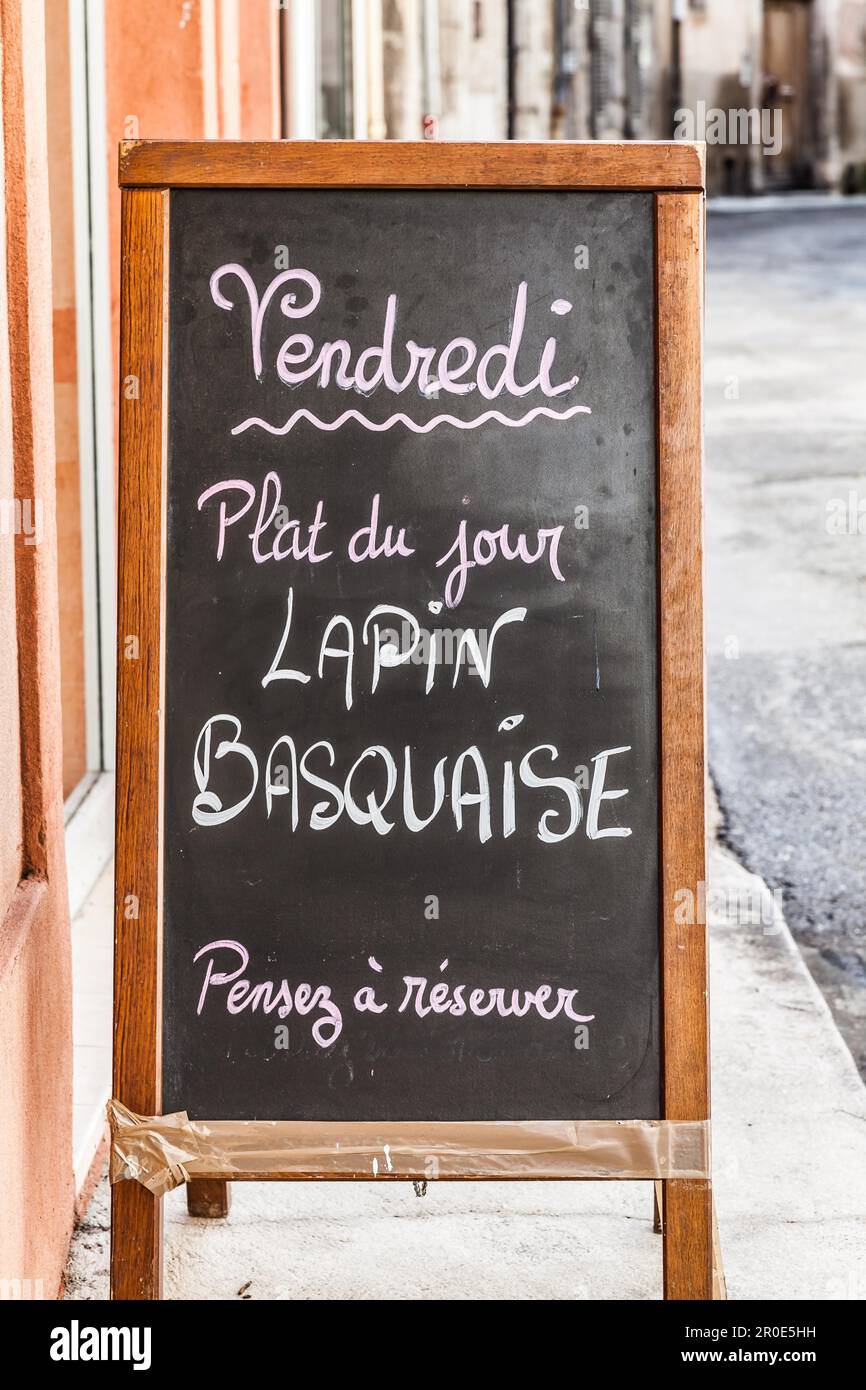 Vendredi
Plat du jour
LAPiN
BASQUAiSE
Pensez à réserver
alamy
Image ID: 2R0E5HH
www.alamy.com